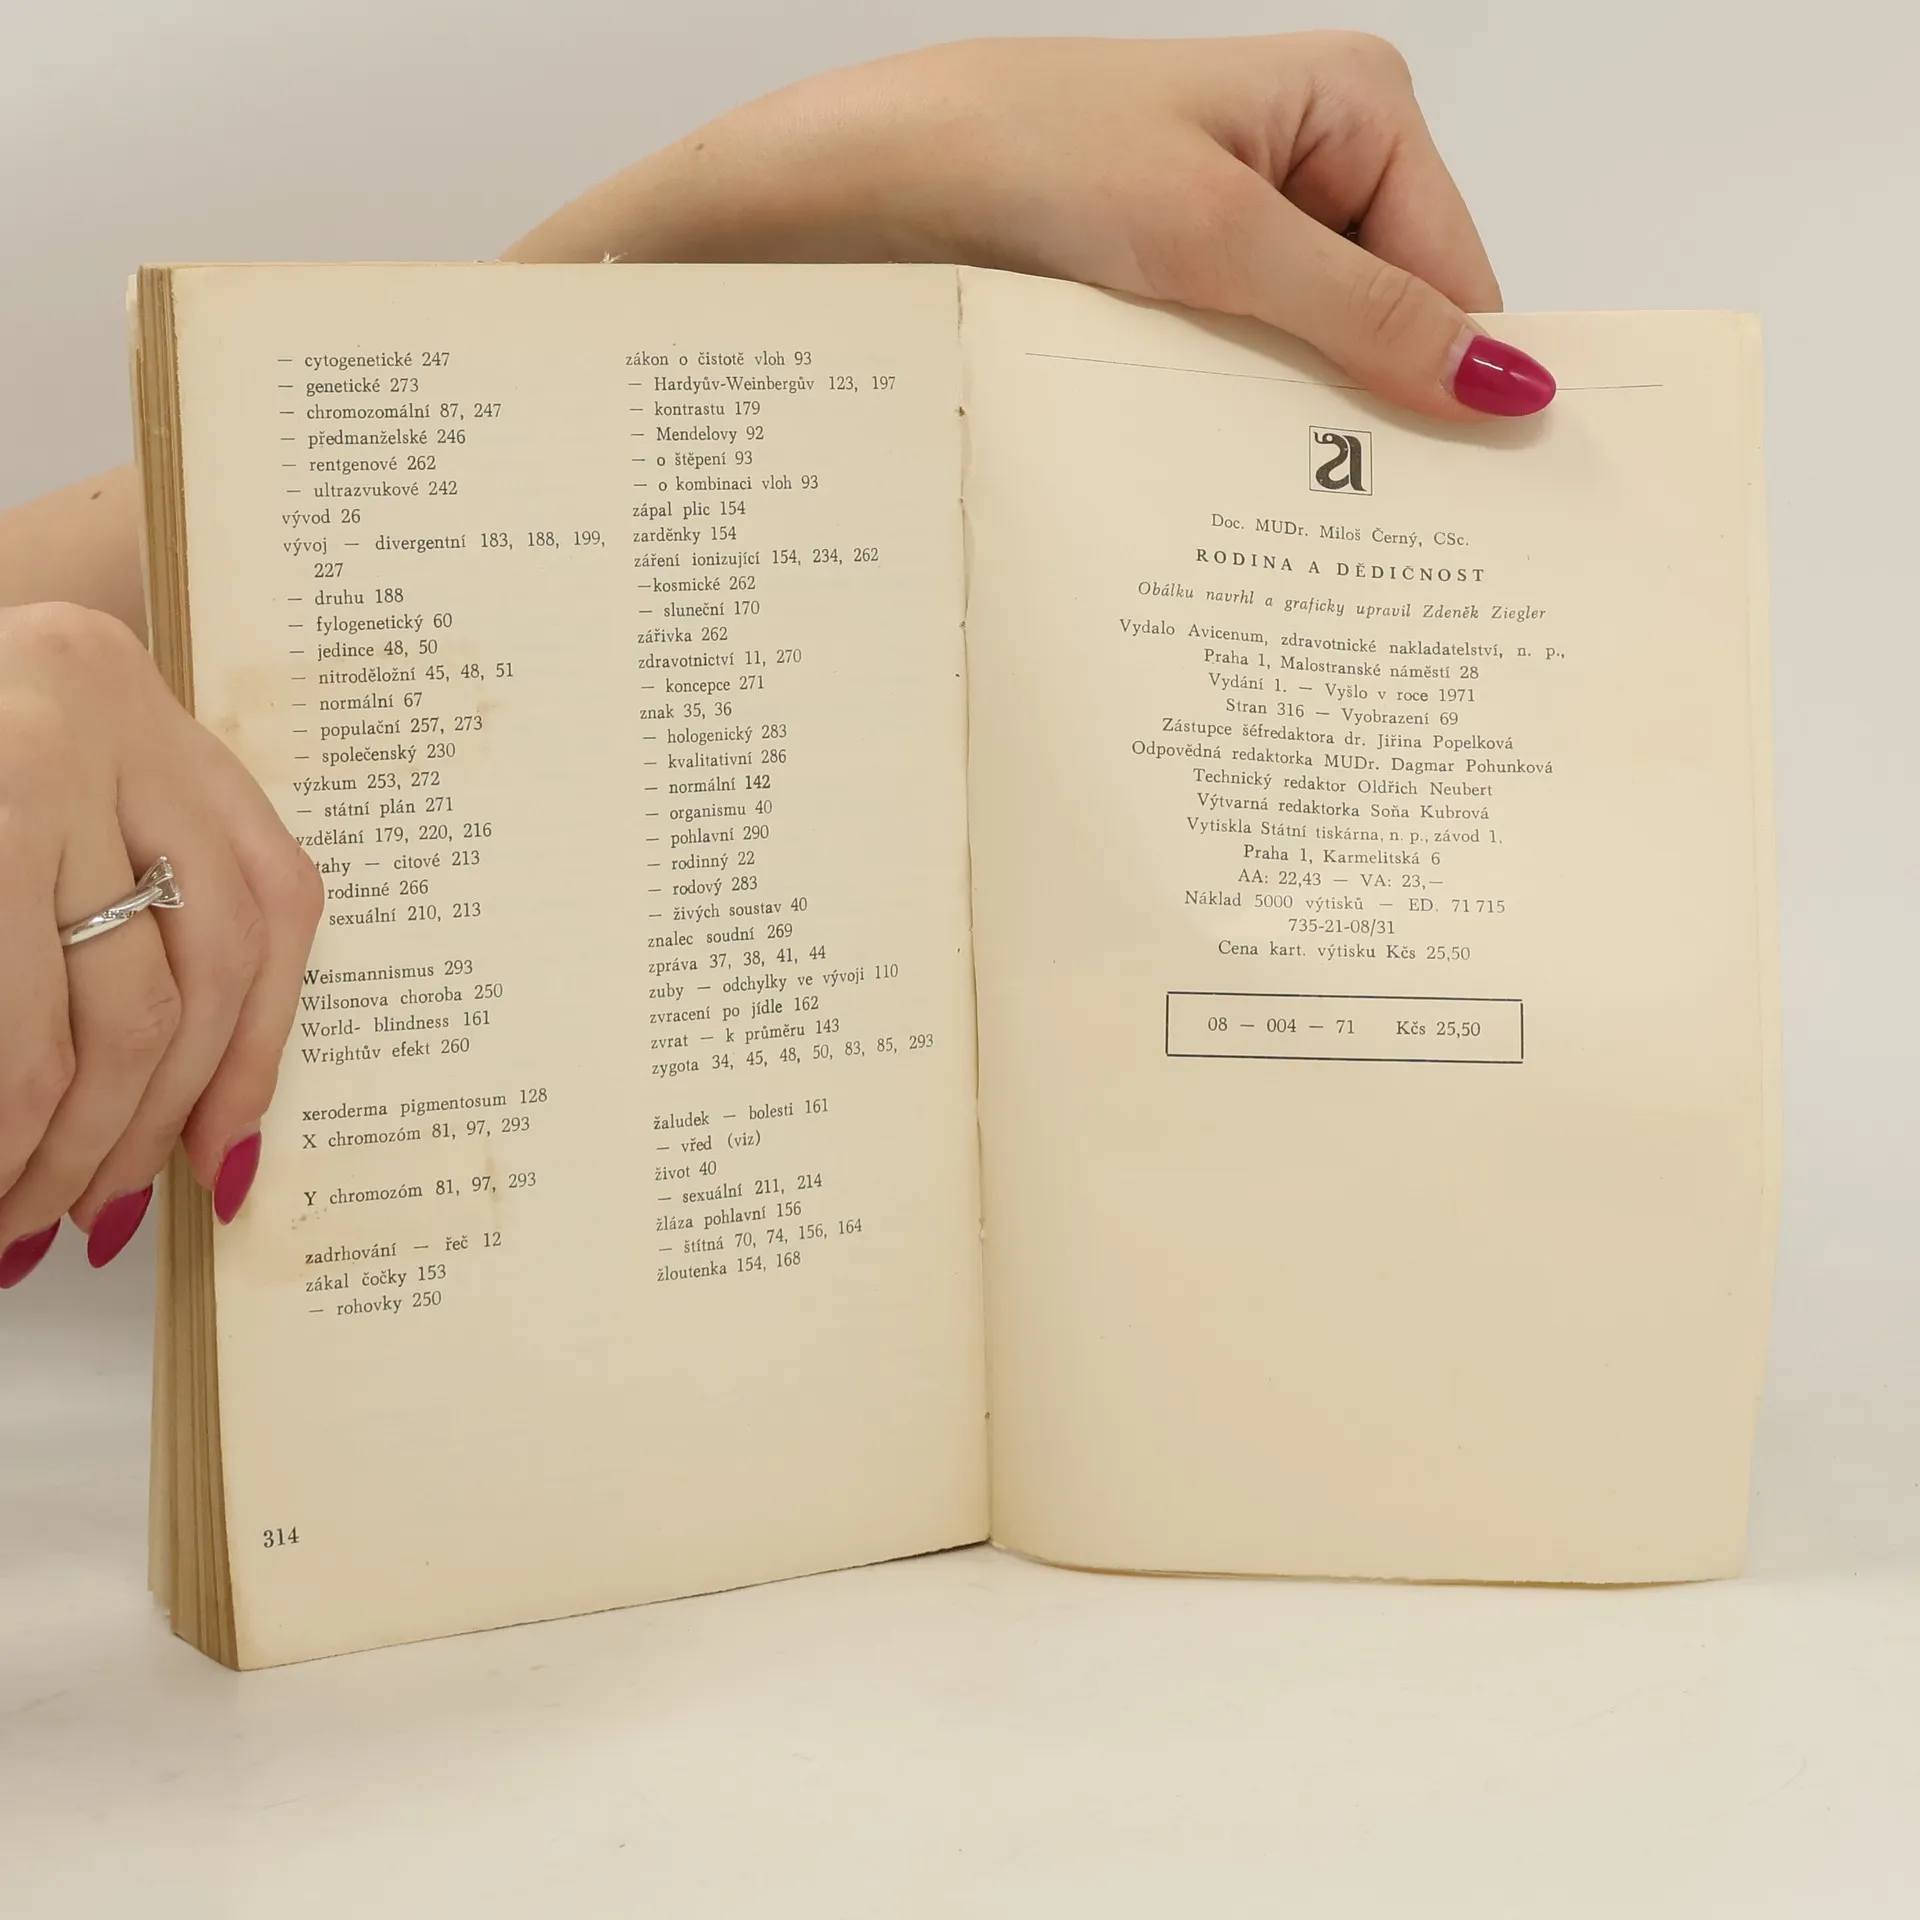 — cytogenetické 247
— genetické 273
— chromozomální 87, 247
— předmanželské 246
— rentgenové 262
— ultrazvukové 242
vývod 26
vývoj — divergentní 183, 188, 199,
227
— druhu 188
— fylogenetický 60
— jedince 48, 50
— nitroděložní 45, 48, 51
— normální 67
— populační 257, 273
— společenský 230
výzkum 253, 272
— státní plán 271
vzdělání 179, 220, 216
tahy — citové 213
rodinné 266
sexuální 210, 213
Weismannismus 293
Wilsonova choroba 250
World- blindness 161
Wrightův efekt 260
xeroderma pigmentosum 128
X chromozóm 81, 97, 293
Y chromozóm 81, 97, 293
zadrhování — řeč 12
zákal čočky 153
— rohovky 250
314
zákon o čistotě vloh 93
— Hardyův-Weinbergův 123, 197
— kontrastu 179
— Mendelovy 92
— o štěpení 93
— o kombinaci vloh 93
zápal plic 154
zarděnky 154
záření ionizující 154, 234, 262
—kosmické 262
— sluneční 170
zářivka 262
zdravotnictví 11, 270
— koncepce 271
znak 35, 36
— hologenický 283
— kvalitativní 286
— normální 142
— organismu 40
— pohlavní 290
— rodinný 22
— rodový 283
— živých soustav 40
znalec soudní 269
zpráva 37, 38, 41, 44
zuby — odchylky ve vývoji 110
zvracení po jídle 162
zvrat — k průměru 143
zygota 34, 45, 48, 50, 83, 85, 293
žaludek — bolesti 161
— vřed (viz)
život 40
— sexuální 211, 214
žláza pohlavní 156
— štítná 70, 74, 156, 164
žloutenka 154, 168
a
Doc. MUDr. Miloš Černý, CSc.
RODINA A DĚDIČNOST
Obálku navrhl a graficky upravil Zdeněk Ziegler
Vydalo Avicenum, zdravotnické nakladatelství, n. p.,
Praha 1, Malostranské náměstí 28
Vydání 1. — Vyšlo v roce 1971
Stran 316 — Vyobrazení 69
Zástupce šéfredaktora dr. Jiřina Popelková
Odpovědná redaktorka MUDr. Dagmar Pohunková
Technický redaktor Oldřich Neubert
Výtvarná redaktorka Soňa Kubrová
Vytiskla Státní tiskárna, n. p., závod 1,
Praha 1, Karmelitská 6
AA: 22,43 — VA: 23,—
Náklad 5000 výtisků — ED. 71 715
735-21-08/31
Cena kart. výtisku Kčs 25,50
08 — 004 — 71 Kčs 25,50